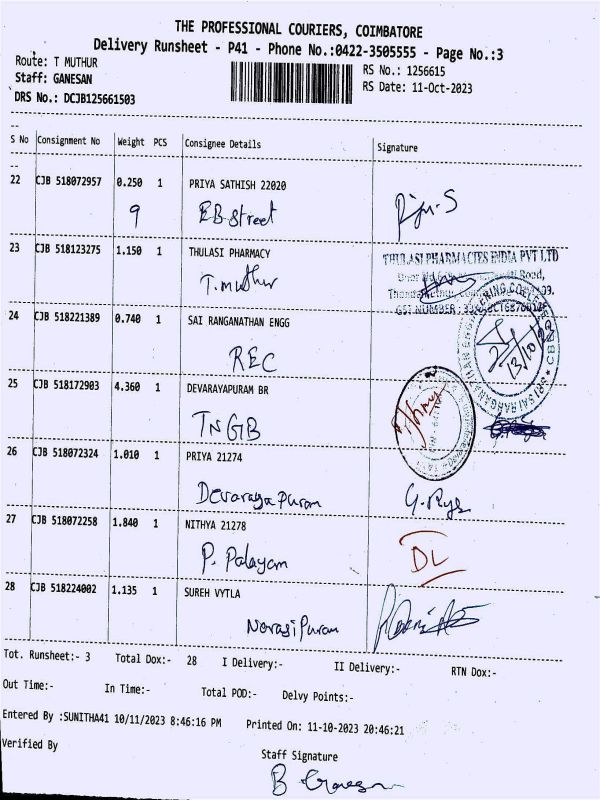 THE PROFESSIONAL COURIERS, COIMBATORE
Delivery Runsheet - P41 - Phone No.:0422-3505555 - Page No.:3
Route: T MUTHUR
RS No.: 1256615
Staff: GANESAN
RS Date: 11-Oct-2023
DRS No.: DCJB125661503
S No Consignment No Weight PCS Consignee Details Signature
22 CJB 518072957 0.250 1 PRIYA SATHISH 22020
9 EB Street
23 CJB 518123275 1.150 1 THULASI PHARMACY
THULASI PHARMACIES INDIA PVT LTD
T.muthur
Road,
24 CJB 518221389 0.740 1 SAI RANGANATHAN ENGG
REC
13/10/23
25 CJB 518172903 4.360 1 DEVARAYAPURAM BR
TNGB
26 CJB 518072324 1.010 1 PRIYA 21274
Devarayapuram
27 CJB 518072258 1.840 1 NITHYA 21278
P. Palayam DL
28 CJB 518224002 1.135 1 SUREH VYTLA
Narasipuram
Tot. Runsheet:- 3 Total Dox:- 28 I Delivery:- II Delivery:- RTN Dox:-
Out Time:- In Time:- Total POD:- Delvy Points:-
Entered By :SUNITHA41 10/11/2023 8:46:16 PM Printed On: 11-10-2023 20:46:21
Verified By
Staff Signature